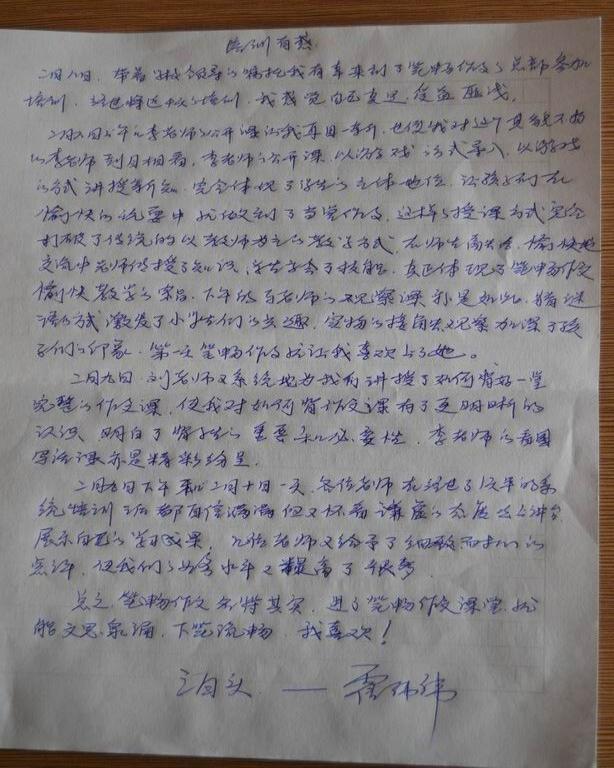 培训有感
二月八日,带着学校领导的嘱托我有幸来到了笔畅作文的总部参加
培训,经过将近三天的培训,我感觉自己真是受益匪浅。
二月八日上午的李老师的公开课让我耳目一新,也使我对这个其貌不扬
的李老师刮目相看,李老师的公开课,以游戏的方式导入,以游戏
的方式讲授新知,完全体现了学生的主体地位,让孩子们在
愉快的玩耍中就做到了学写作文,这样的授课方式完全
打破了传统的以教师为主的教学方式,在师生高兴、愉快地
交流中老师传授了知识,学生学会了技能,真正体现了笔畅作文
愉快教学的宗旨。下午的老师的观察课亦是如此,猜谜
语的方式激发了小学生们的兴趣,实物的接触观察加深了孩
子们的印象。第一次笔畅作文就让我喜欢上了她。
二月九日,刘老师又系统地为我们讲授了如何背好一堂
完整的作文课,使我对如何背作文课有了更明晰的
认识,明白了背学生的重要和必要性,李老师的看图
写话课亦是精彩纷呈。
二月九日下午和二月十日一天,各位老师在经过了1天半的系
统培训之后都自信满满但又怀着谦虚的态度走上讲台
展示自己的学习成果,几位老师又给予了细致而的
点评,使我们的业务水平又提高了很多。
总之,笔畅作文名符其实,进了笔畅作文课堂,就
能文思泉涌,下笔流畅,我喜欢!
泊头——霍